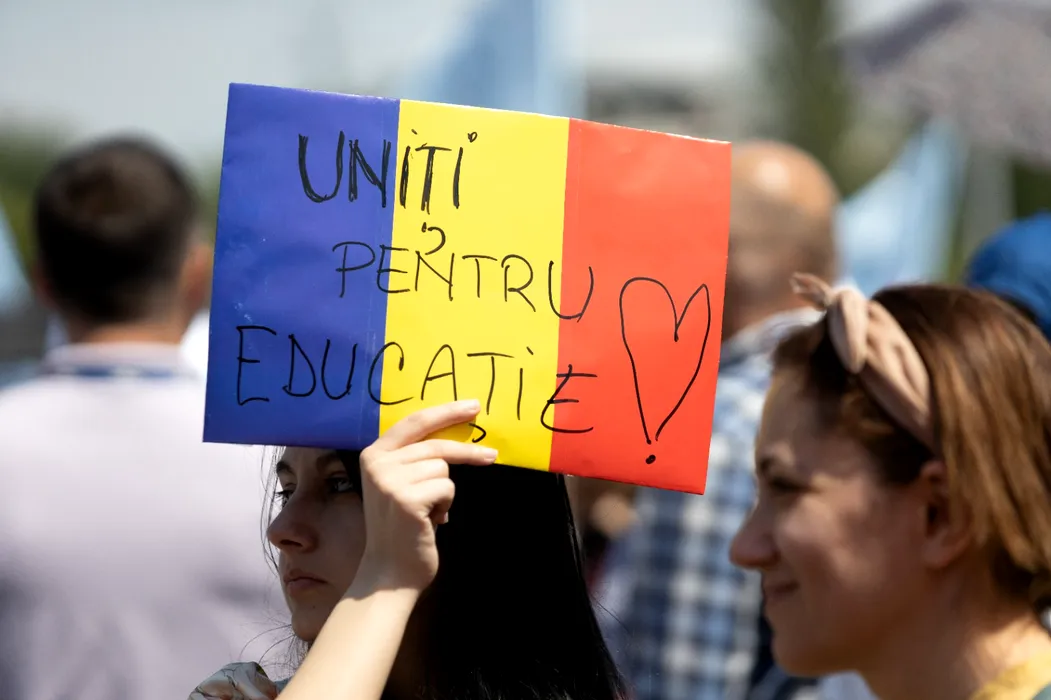 UNIȚI
PENTRU
EDUCAȚIE